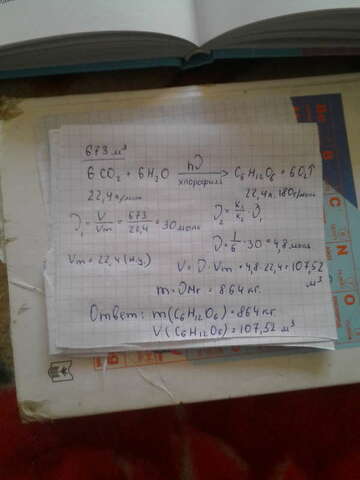 673 м³
6CO₂ + 6H₂O hν → C₆H₁₂O₆ + 6O₂↑
хлорофилл
22,4 л/моль 22,4л. 180г/моль
ν₁ = V/Vm = 673/22,4 = 30 моль ν₂ = к₂/к₁ · ν₁
ν = 1/6 · 30 = 4,8 моль
Vm = 22,4 (н.у) V = ν · Vm = 4,8 · 22,4 = 107,52 м³
m = ν Mr = 864 кг.
Ответ: m(C₆H₁₂O₆) = 864 кг
V(C₆H₁₂O₆) = 107,52 м³